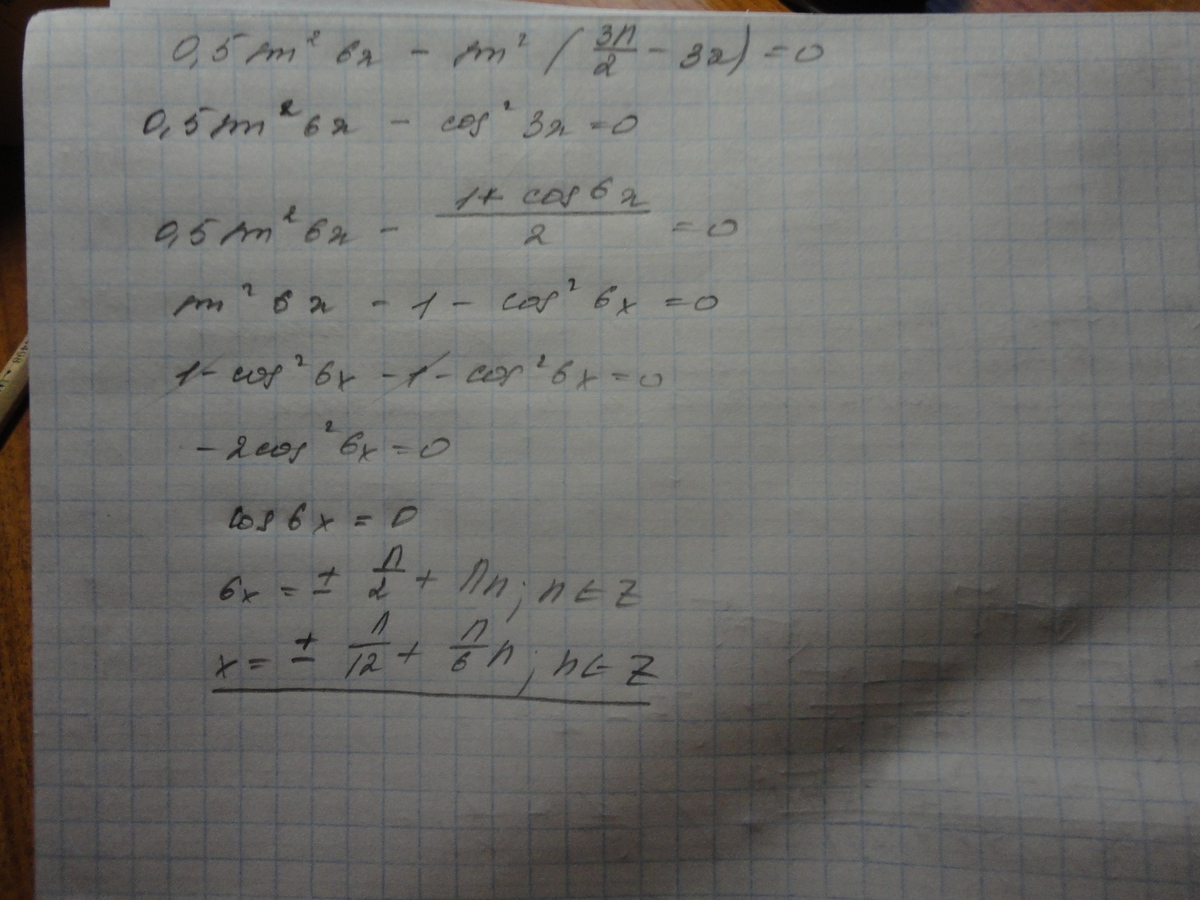 0,5 sin² 6x - sin² (3π/2 - 3x) = 0
0,5 sin² 6x - cos² 3x = 0
0,5 sin² 6x - (1 + cos 6x)/2 = 0
sin² 6x - 1 - cos² 6x = 0
1 - cos² 6x - 1 - cos² 6x = 0
- 2cos² 6x = 0
cos 6x = 0
6x = ± π/2 + πn; n ∈ Z
x = ± π/12 + π/6 n; n ∈ Z